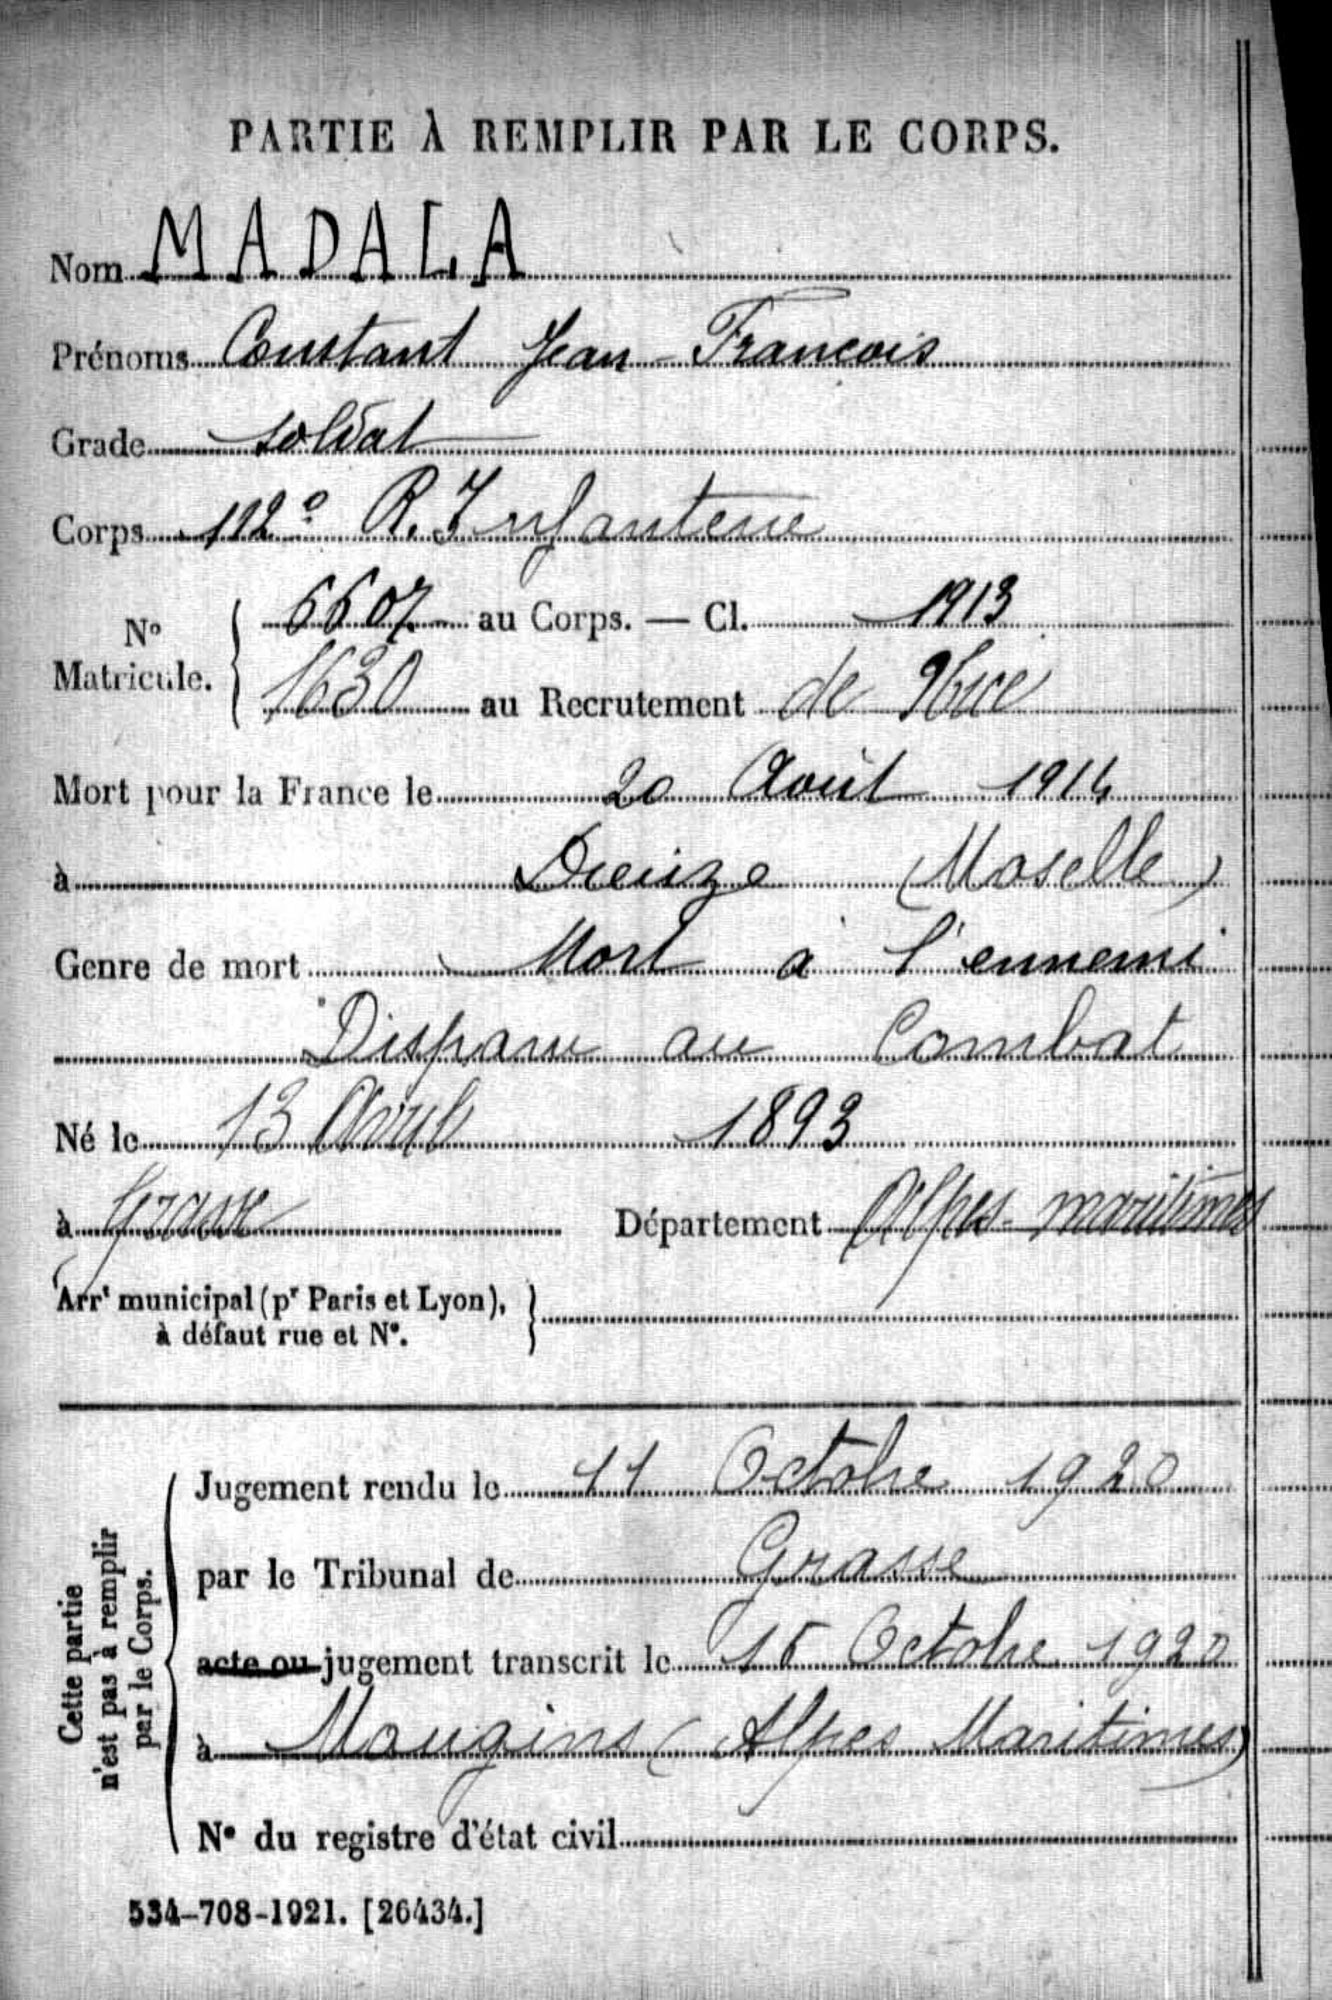 PARTIE À REMPLIR PAR LE CORPS.
Nom MADALA
Prénoms Constant Jean François
Grade soldat
Corps 112e R. Infanterie
No Matricule. 6607 au Corps. — Cl. 1913
1630 au Recrutement de Nice
Mort pour la France le 20 Août 1914
à Dieuze (Moselle)
Genre de mort Mort à l'ennemi
Disparu au Combat
Né le 13 Avril 1893
à Grasse Département Alpes-maritimes
Arrt municipal (pr Paris et Lyon),
à défaut rue et No.
Cette partie
n'est pas à remplir
par le Corps.
Jugement rendu le 11 Octobre 1920
par le Tribunal de Grasse
acte ou jugement transcrit le 15 Octobre 1920
à Mougins (Alpes Maritimes)
No du registre d'état civil
534-708-1921. [26434.]